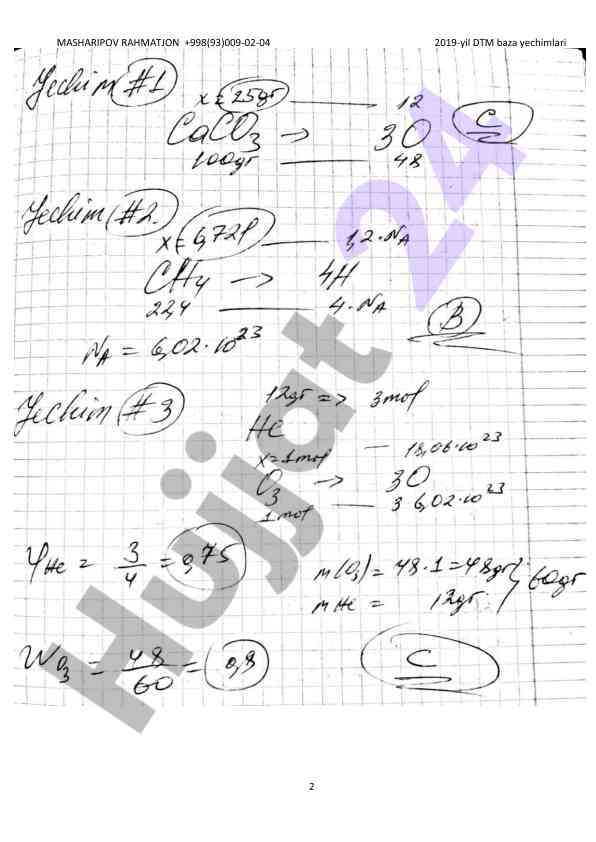 MASHARIPOV RAHMATJON +998(93)009-02-04 2019-yil DTM baza yechimlari
Yechim #1
x = 25gr 12
CaCO3 → 3O C
100gr 48
Yechim #2.
x = 6,72l 1,2·NA
CH4 → 4H
22,4 4·NA B
NA = 6,02·10^23
Yechim #3
12gr => 3mol
He
x = 1mol — 18,06·10^23
O3 → 3O
1mol 3 6,02·10^23
φHe = 3/4 = 0,75
m(O3) = 48·1 = 48gr } 60gr
mHe = 12gr
WO3 = 48/60 = 0,8 C
Hujjat 24
2